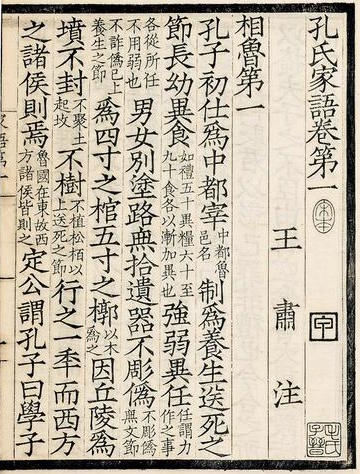 孔氏家語卷第一
王肅注
相魯第一
孔子初仕爲中都宰中都魯邑名制爲養生送死之
節長幼異食如禮五十異糧六十至九十食各以漸加異也強弱異任任謂力作之事
各從所任不用弱也男女別塗路無拾遺器不彫僞
不詐僞已上養生之節爲四寸之棺五寸之槨以木爲之因丘陵爲
墳不封不聚土起坟不樹不植松栢以上送死之節行之一秊而西方
之諸侯則焉魯國在東故西方諸侯皆則之定公謂孔子曰學子